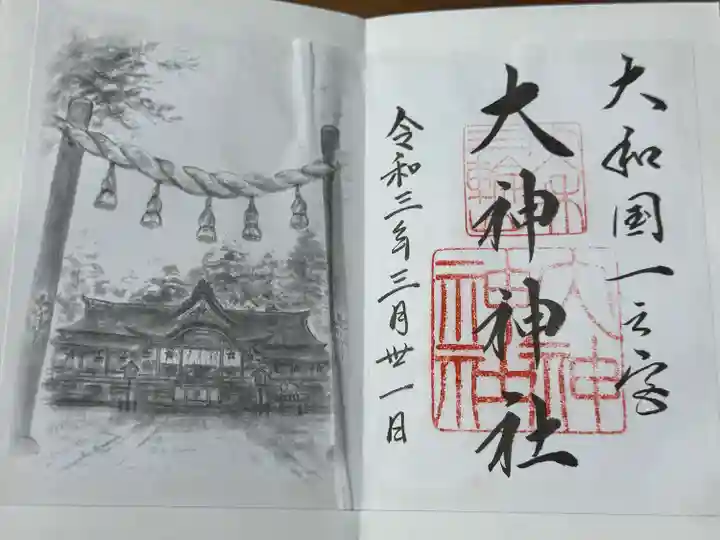 大和国一之宮
大神神社
令和三年三月卅一日
大神
神社